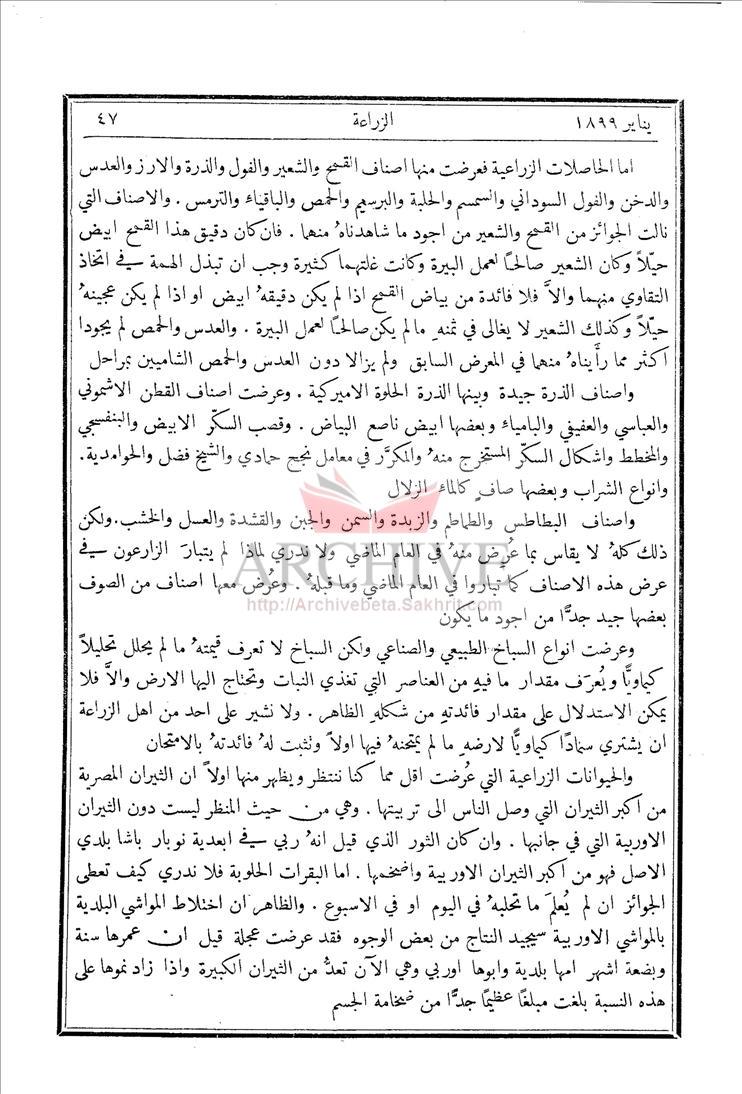 يناير ١٨٩٩ الزراعة ٤٧
اما الحاصلات الزراعية فعرضت منها اصناف القمح والشعير والفول والذرة والارز والعدس
والدخن والفول السوداني والسمسم والحلبة والبرسيم والحمص والباقياء والترمس . والاصناف التي
نالت الجوائز من القمح والشعير من اجود ما شاهدناهُ منهما . فان كان دقيق هذا القمح ابيض
حيّلاً وكان الشعير صالحًا لعمل البيرة وكانت غلتهما كثيرة وجب ان تبذل الهمة في اتخاذ
التقاوي منهما والاَّ فلا فائدة من بياض القمح اذا لم يكن دقيقهُ ابيض او اذا لم يكن عجينهُ
حيّلاً وكذلك الشعير لا يغالى في ثمنهِ ما لم يكن صالحًا لعمل البيرة . والعدس والحمص لم يجودا
اكثر مما رأيناهُ منهما في المعرض السابق ولم يزالا دون العدس والحمص الشاميين بمراحل
واصناف الذرة جيدة وبينها الذرة الحلوة الاميركية . وعرضت اصناف القطن الاشموني
والعباسي والعفيفي والبامياء وبعضها ابيض ناصع البياض . وقصب السكّر الابيض والبنفسجي
والمخطط واشكال السكّر المستخرج منهُ والمكرَّر في معامل نجح حمادي والشيخ فضل والحوامدية.
وانواع الشراب وبعضها صافٍ كالماء الزلال
واصناف البطاطس والطماطم والزبدة والسمن والجبن والقشدة والعسل والخشب.ولكن
ذلك كلهُ لا يقاس بما عُرض منهُ في العام الماضي ولا ندري لماذا لم يتبارَ الزارعون في
عرض هذه الاصناف كما تباروا في العام الماضي وما قبلهُ . وعُرض معها اصناف من الصوف
بعضها جيد جدًّا من اجود ما يكون
ARCHIVE
http://Archivebeta.Sakhrit.com
وعرضت انواع السباخ الطبيعي والصناعي ولكن السباخ لا تعرف قيمتهُ ما لم يحلل تحليلاً
كياويًّا ويُعرَف مقدار ما فيهِ من العناصر التي تغذي النبات وتحتاج اليها الارض والاَّ فلا
يمكن الاستدلال على مقدار فائدتهِ من شكلهِ الظاهر . ولا نشير على احد من اهل الزراعة
ان يشتري سمادًا كياويًّا لارضهِ ما لم يمتحنهُ فيها اولاً وتثبت لهُ فائدتهُ بالامتحان
والحيوانات الزراعية التي عُرضت اقل مما كنا ننتظر ويظهر منها اولاً ان الثيران المصرية
من اكبر الثيران التي وصل الناس الى تربيتها . وهي من حيث المنظر ليست دون الثيران
الاوربية التي في جانبها . وان كان الثور الذي قيل انهُ ربي في ابعدية نوبار باشا بلدي
الاصل فهو من اكبر الثيران الاوربية واضخمها . اما البقرات الحلوبة فلا ندري كيف تعطى
الجوائز ان لم يُعلَم ما تحلبهُ في اليوم او في الاسبوع . والظاهر ان اختلاط المواشي البلدية
بالمواشي الاوربية سيجيد النتاج من بعض الوجوه فقد عرضت عجلة قيل ان عمرها سنة
وبضعة اشهر امها بلدية وابوها اوربي وهي الآن تعدُّ من الثيران الكبيرة واذا زاد نموها على
هذه النسبة بلغت مبلغًا عظيمًا جدًّا من ضخامة الجسم